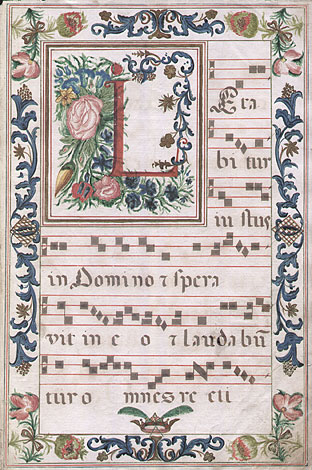 L Eta
bi tur
in stus
in Domino τ spera
vit in e o τ laudabū
tur o mnes re cti